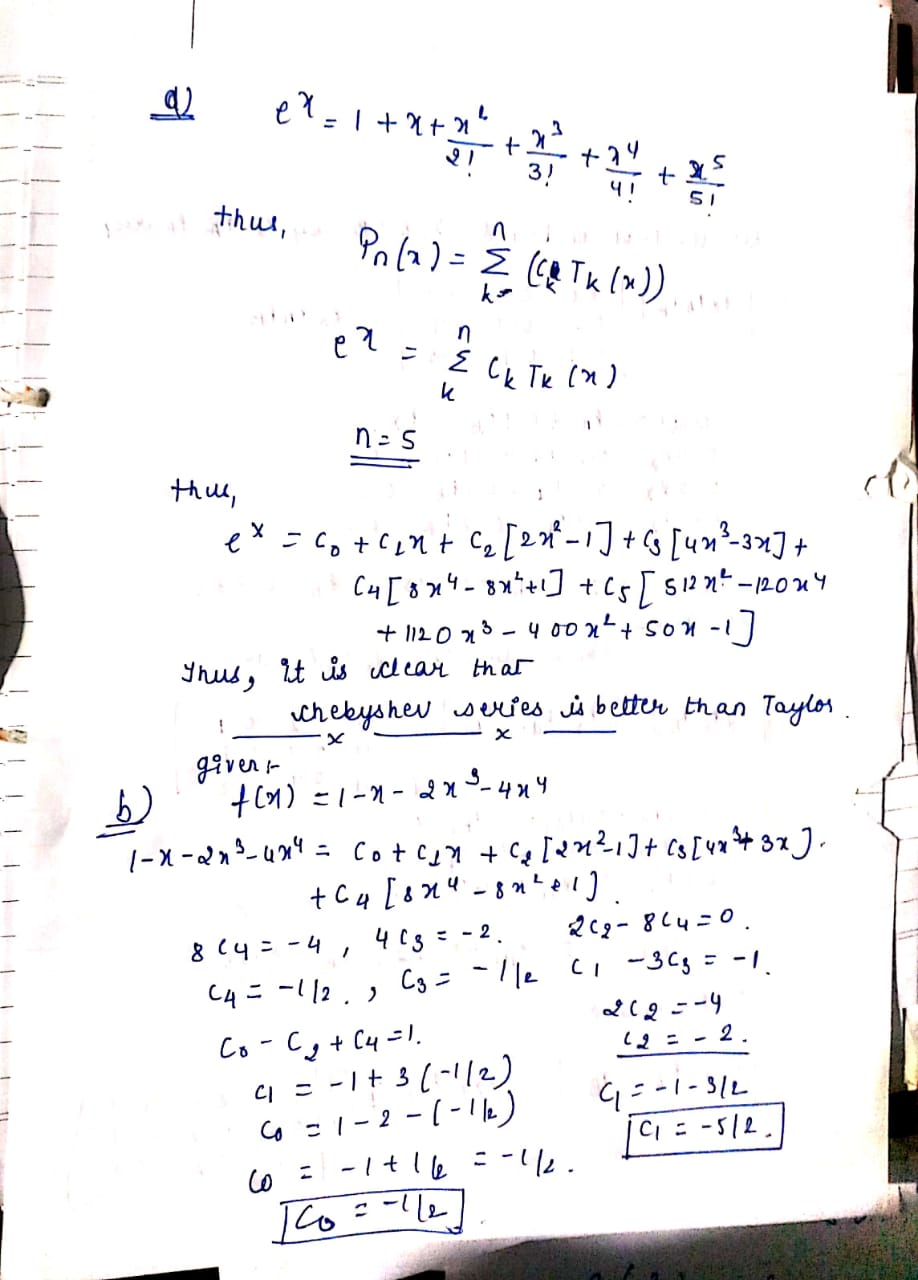 a)
e^x = 1 + x + x^2/2! + x^3/3! + x^4/4! + x^5/5!
thus,
Pn(x) = Σ^n_k= (Ck Tk(x))
e^x = Σ^n_k Ck Tk(x)
n = 5
thus,
e^x = C0 + C1x + C2[2x^2-1] + C3[4x^3-3x] +
C4[8x^4 - 8x^2+1] + C5[512x^5 - 120x^4
+ 1120x^3 - 400x^2 + 50x - 1]
Thus, it is clear that
chebyshev series is better than Taylor.
x x
given :-
b) f(x) = 1-x-2x^3-4x^4
1-x-2x^3-4x^4 = C0 + C1x + C2[2x^2-1] + C3[4x^3+3x].
+ C4[8x^4 - 8x^2+1].
8C4 = -4, 4C3 = -2. 2C2 - 8C4 = 0.
C4 = -1/2., C3 = -1/2 C1 - 3C3 = -1.
C0 - C2 + C4 = 1. 2C2 = -4
C2 = -2.
C1 = -1 + 3(-1/2) C1 = -1 - 3/2
C0 = 1 - 2 - (-1/2) C1 = -5/2.
C0 = -1 + 1/2 = -1/2.
C0 = -1/2.